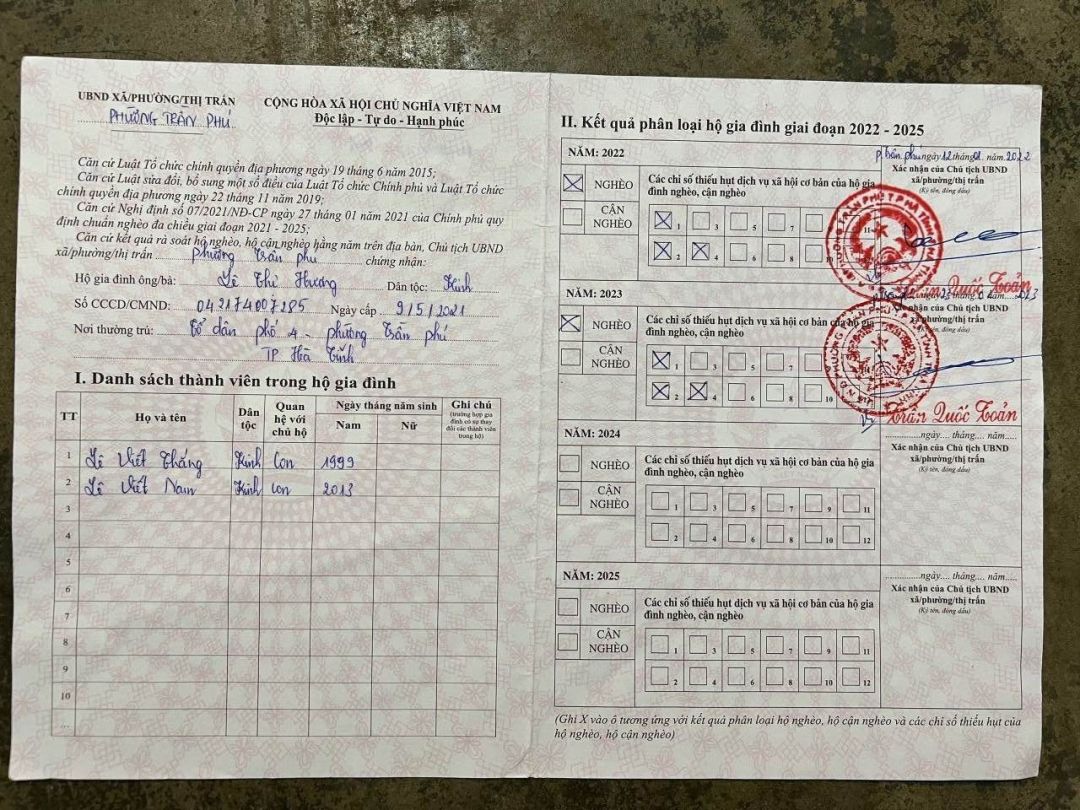 UBND XÃ/PHƯỜNG/THỊ TRẤN
PHƯỜNG TRẦN PHÚ
CỘNG HÒA XÃ HỘI CHỦ NGHĨA VIỆT NAM
Độc lập - Tự do - Hạnh phúc
Căn cứ Luật Tổ chức chính quyền địa phương ngày 19 tháng 6 năm 2015;
Căn cứ Luật sửa đổi, bổ sung một số điều của Luật Tổ chức Chính phủ và Luật Tổ chức
chính quyền địa phương ngày 22 tháng 11 năm 2019;
Căn cứ Nghị định số 07/2021/NĐ-CP ngày 27 tháng 01 năm 2021 của Chính phủ quy
định chuẩn nghèo đa chiều giai đoạn 2021 - 2025;
Căn cứ kết quả rà soát hộ nghèo, hộ cận nghèo hằng năm trên địa bàn, Chủ tịch UBND
xã/phường/thị trấn phường Trần phú chứng nhận:
Hộ gia đình ông/bà: Lê Thị Hương Dân tộc: Kinh
Số CCCD/CMND: 042174007285 Ngày cấp 9/5/2021
Nơi thường trú: Tổ dân phố 4 - phường Trần phú
TP Hà Tĩnh
I. Danh sách thành viên trong hộ gia đình
TT Họ và tên Dân tộc Quan hệ với chủ hộ Ngày tháng năm sinh Nam Nữ Ghi chú
(trường hợp gia đình có sự thay đổi các thành viên trong hộ)
1 Lê Viết Thắng Kinh Con 1999
2 Lê Viết Nam Kinh Con 2013
3
4
5
6
7
8
9
10
...
II. Kết quả phân loại hộ gia đình giai đoạn 2022 - 2025
NĂM: 2022
NGHÈO
CẬN NGHÈO
Các chỉ số thiếu hụt dịch vụ xã hội cơ bản của hộ gia
đình nghèo, cận nghèo
1 3 5 7 11
2 4 6 8 10
ngày 12 tháng năm 2022
Xác nhận của Chủ tịch UBND
xã/phường/thị trấn
(Ký tên, đóng dấu)
Trần Quốc Toản
NĂM: 2023
NGHÈO
CẬN NGHÈO
Các chỉ số thiếu hụt dịch vụ xã hội cơ bản của hộ gia
đình nghèo, cận nghèo
1 3 5 7
2 4 6 8 10
Trần Quốc Toản
NĂM: 2024
NGHÈO
CẬN NGHÈO
Các chỉ số thiếu hụt dịch vụ xã hội cơ bản của hộ gia
đình nghèo, cận nghèo
1 3 5 7 9 11
2 4 6 8 10 12
ngày.... tháng.... năm....
Xác nhận của Chủ tịch UBND
xã/phường/thị trấn
(Ký tên, đóng dấu)
NĂM: 2025
NGHÈO
CẬN NGHÈO
Các chỉ số thiếu hụt dịch vụ xã hội cơ bản của hộ gia
đình nghèo, cận nghèo
1 3 5 7 9 11
2 4 6 8 10 12
ngày.... tháng.... năm....
Xác nhận của Chủ tịch UBND
xã/phường/thị trấn
(Ký tên, đóng dấu)
(Ghi X vào ô tương ứng với kết quả phân loại hộ nghèo, hộ cận nghèo và các chỉ số thiếu hụt của
hộ nghèo, hộ cận nghèo)